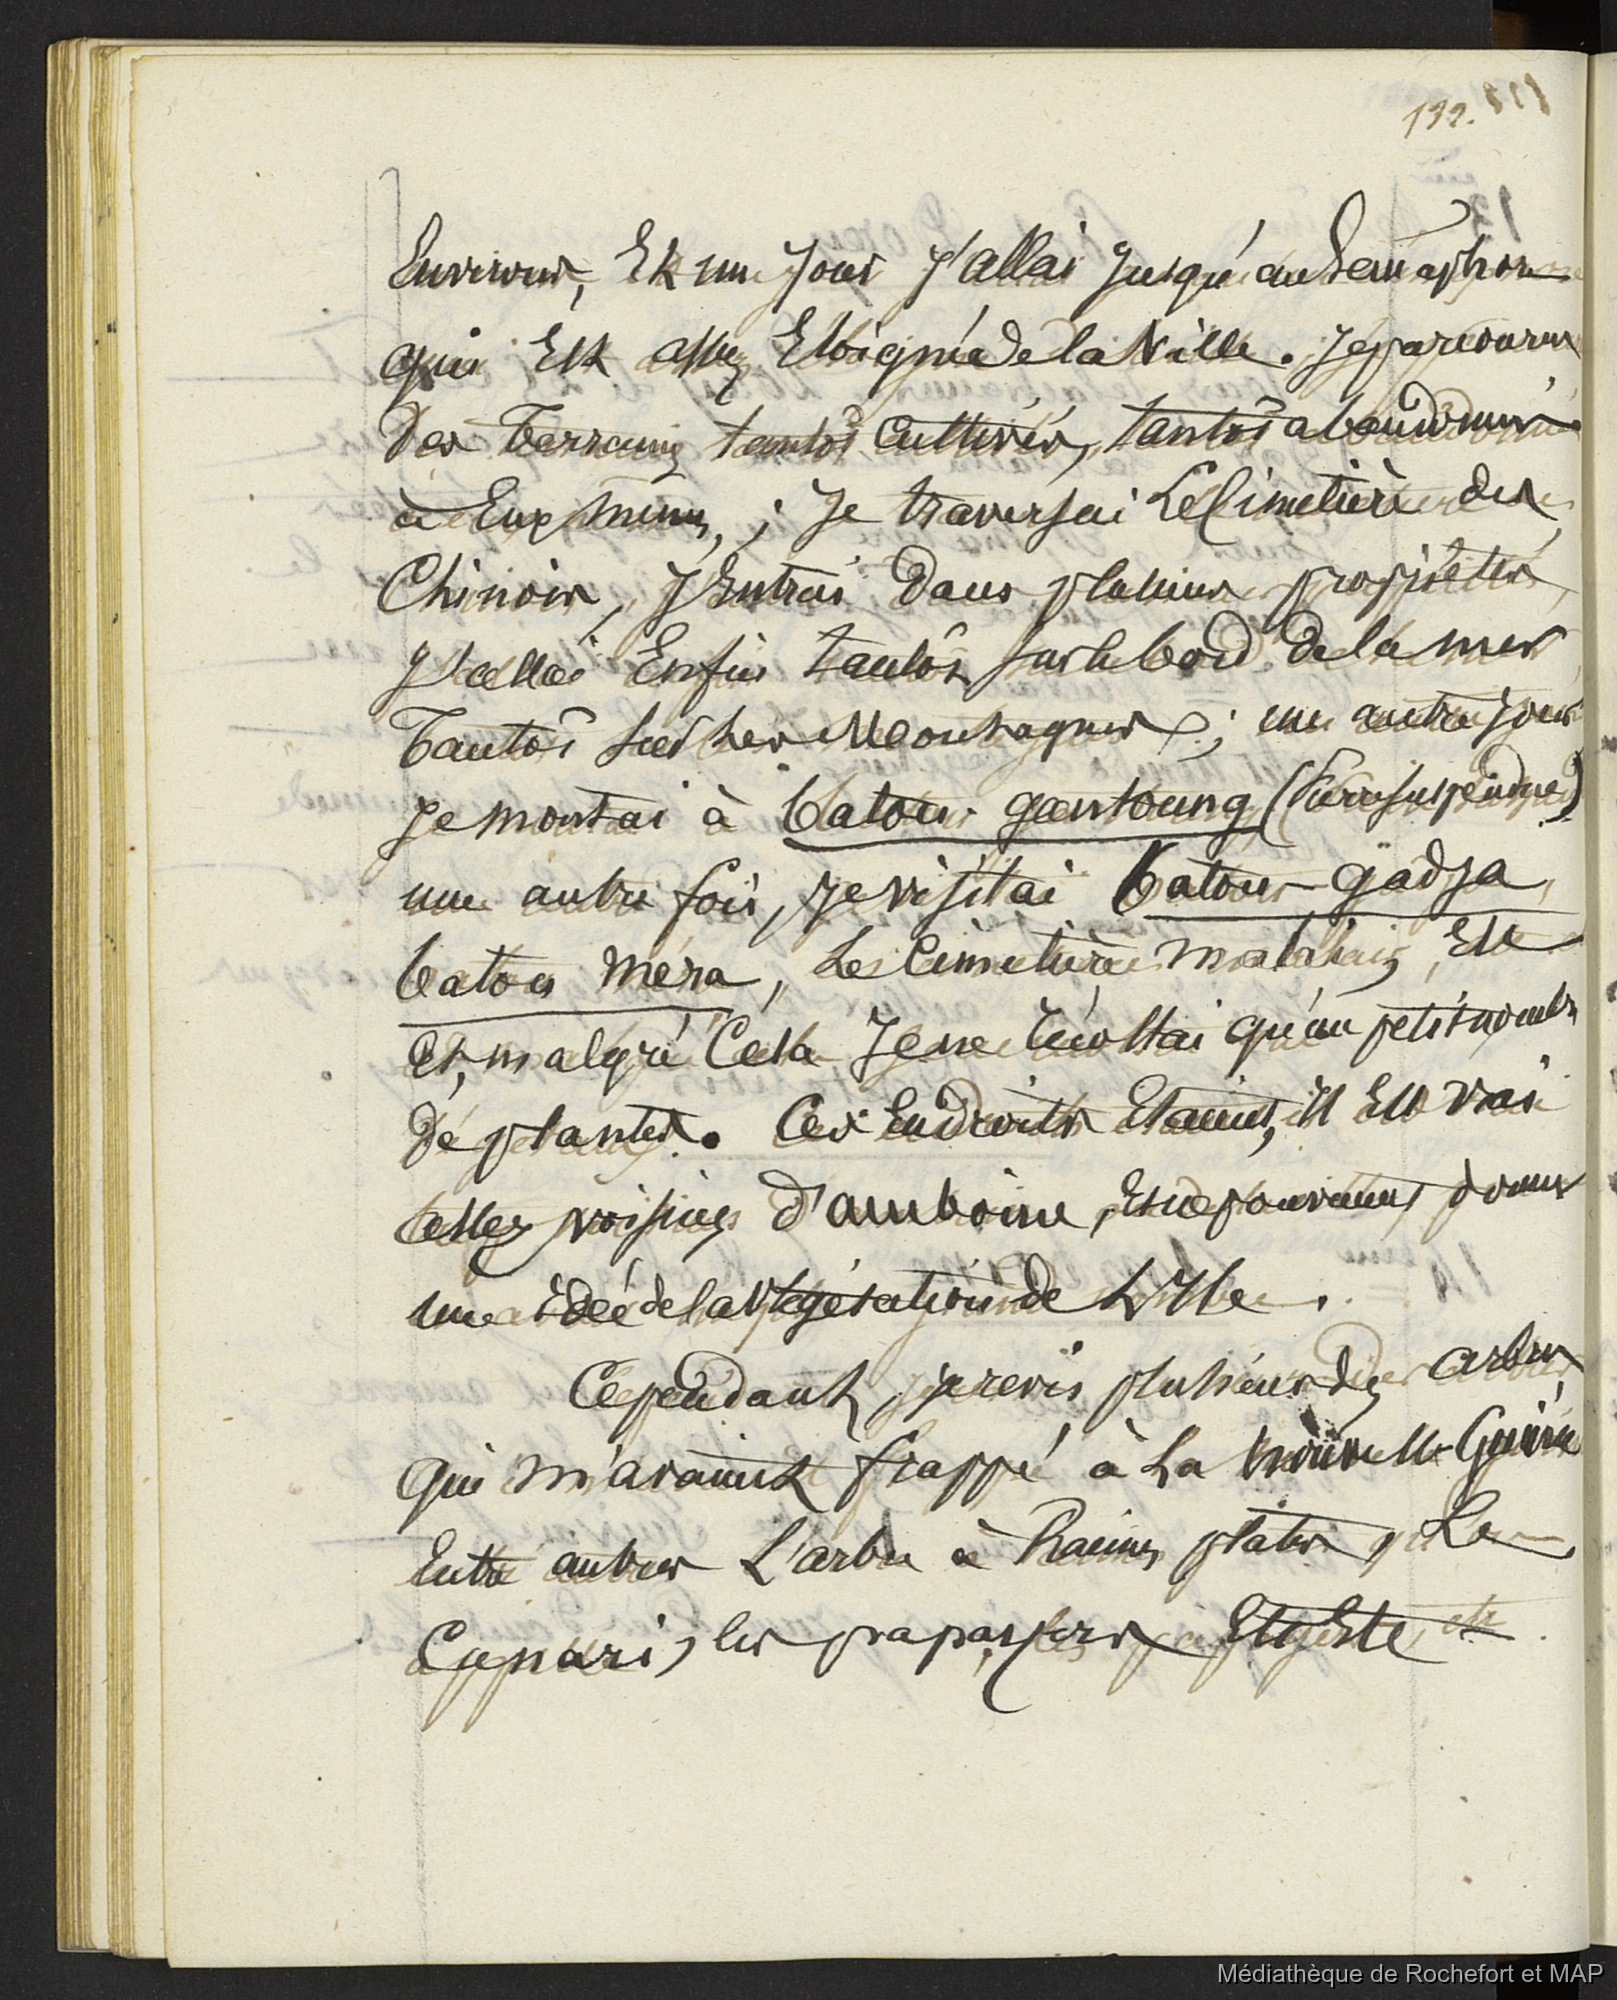 132.
Environs, Et un Jour J'allai Jusqu'au Semaphore
qui Est assez Eloigné de la Ville. Je parcourus
des terrains tantôt cultivés, tantôt abandonnés
à Eux mêmes, ; Je traversai Le Cimetière des
Chinois, J'Entrai Dans plusieurs propriétés,
J'allai Enfin tantôt sur le bord De la mer
Tantôt sur Les Montagnes ; un autre jour
Je montai à batou gantoung (Pierre suspendue)
une autre fois, Je visitai batou-gadja,
batou mera, Le Cimetière malais, Etc
Et, malgré Cela Je ne récoltai qu'un petit nombre
de plantes. Ces Endroits Etaient, il Est vrai
assez voisins d'amboine, Et ne pouvaient donner
une idée de la Végétation de L'Ile.
Cependant, je revis plusieurs des arbres
qui m'avaient frappé à La nouvelle Guinée
Entre autres L'arbre à Racines plates, Le
Canari, les grapayers Etc
Médiathèque de Rochefort et MAP